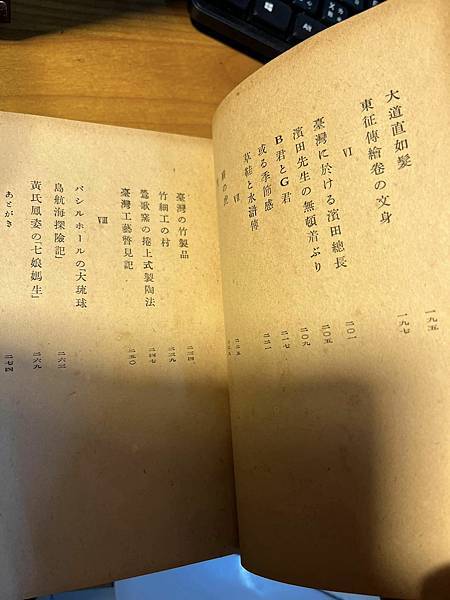 大道直如髮 一九五
東征傳繪卷の文身 一九七
VI
臺灣に於ける濱田總長 二〇一
濱田先生の無頓着ぶり 二〇五
B君とG君 二〇九
或る季節感 二一七
と水滸傳 二二一
VII
の
臺灣の竹製品 二三四
竹細工の村 二三九
鶯歌窯の捲上式製陶法 二四七
臺灣工藝瞥見記 二五〇
VIII
バシルホールの「大琉球
島航海探險記」 二六三
黃氏鳳姿の「七娘媽生」 二六九
あとがき 二七四